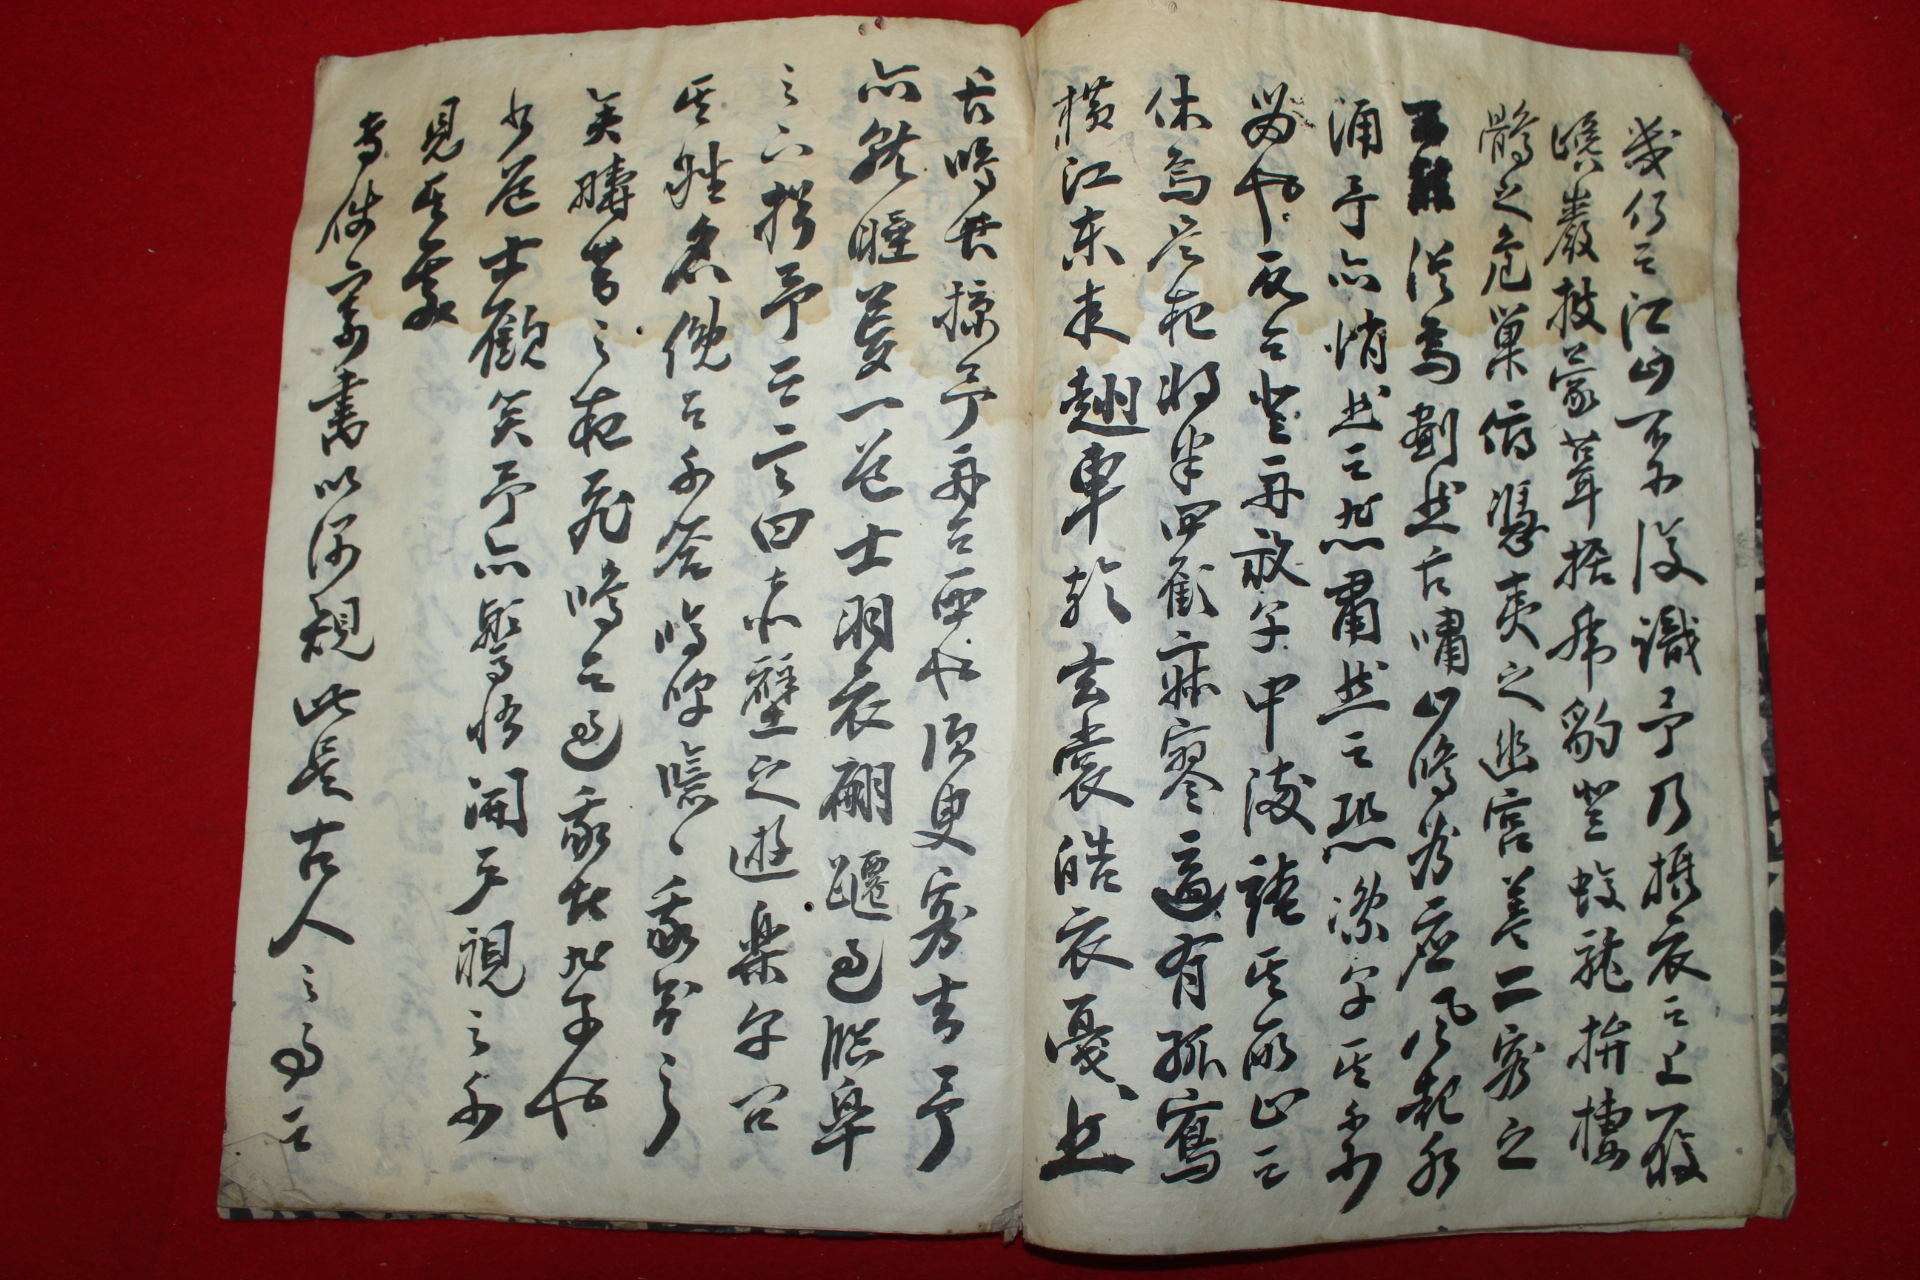 幾何而江山不可復識予乃攝衣而上履
巉巖披蒙茸据虎豹登虯龍攀棲
鶻之危巢俯憑夷之幽宮盖二客之
不能從焉劃然長嘯山鳴谷應風起水
涌予亦悄然而悲肅然而恐凜乎其不可
留也反而登舟放乎中流聽其所止而
休焉是夜將半四顧寂寥適有孤鶴
橫江東来翅車於玄裳皓衣戛〻然
長鳴掠予舟而西也須臾客去予
亦就睡夢一道士羽衣翩躚過臨皋
之下揖予而言曰赤壁之遊樂乎問
其姓名俛而不答嗚呼噫〻我知之
矣疇昔之夜飛鳴而過我者非子也
道士顧笑予亦驚悟開戶視之不
見其處
書以 此是古人之